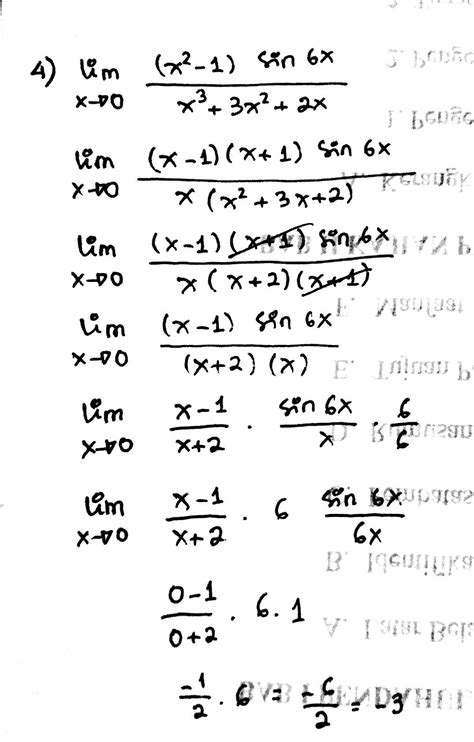 4) lim (x²-1) sin 6x / x³+3x²+2x
x→0
lim (x-1)(x+1) sin 6x / x(x²+3x+2)
x→0
lim (x-1)(x+1) sin 6x / x(x+2)(x+1)
x→0
lim (x-1) sin 6x / (x+2)(x)
x→0
lim x-1 / x+2 . sin 6x / x . 6 / 6
x→0
lim x-1 / x+2 . 6 sin 6x / 6x
x→0
0-1 / 0+2 . 6.1
-1 / 2 . 6 = -6 / 2 = -3
2. Penge
1. Penge
A. Kerangk
BAB II KAJIAN P
F. Manfaat
E. Tujuan P
D. Rumusan
C. Pembatas
B. Identifika
A. Latar Bel
BAB I PENDAHUL